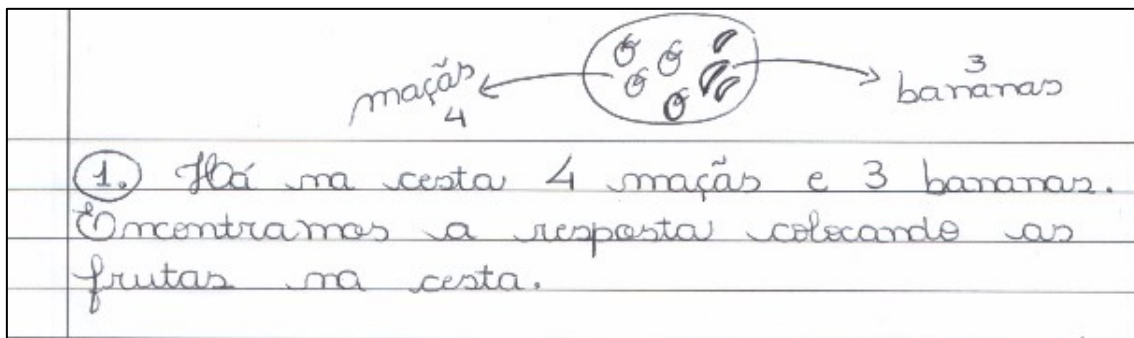 maçãs
4
3
bananas
1. Há na cesta 4 maçãs e 3 bananas.
Encontramos a resposta colocando as
frutas na cesta.